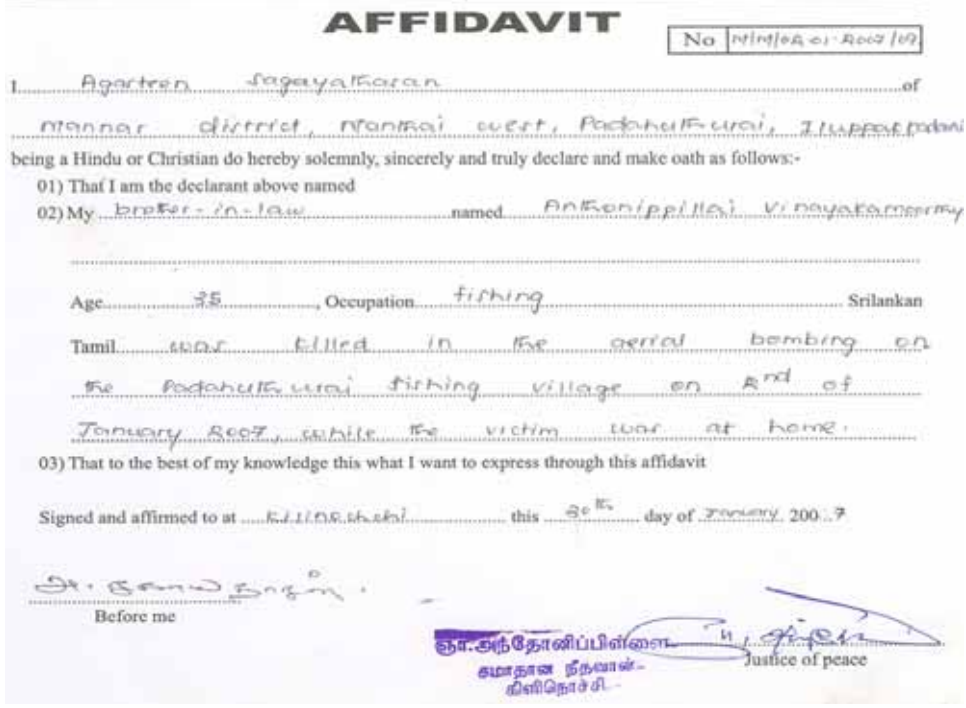 AFFIDAVIT
No M/M/02-01-2007/09
I Agastren Sagayatharan of
Mannar district, Manthai west, Padahuthurai, Iluppaikadavai
being a Hindu or Christian do hereby solemnly, sincerely and truly declare and make oath as follows:-
01) That I am the declarant above named
02) My brother-in-law named Anthonippillai Vinayakamoorthy
Age 35 , Occupation fishing Srilankan
Tamil was killed in the aerial bombing on
the Padahuthurai fishing village on 2nd of
January 2007, while the victim was at home.
03) That to the best of my knowledge this what I want to express through this affidavit
Signed and affirmed to at Kilinochchi this 30th day of January 2007
Before me
ஞா.அந்தோனிப்பிள்ளை
சமாதான நீதவான்
கிளிநொச்சி
Justice of peace